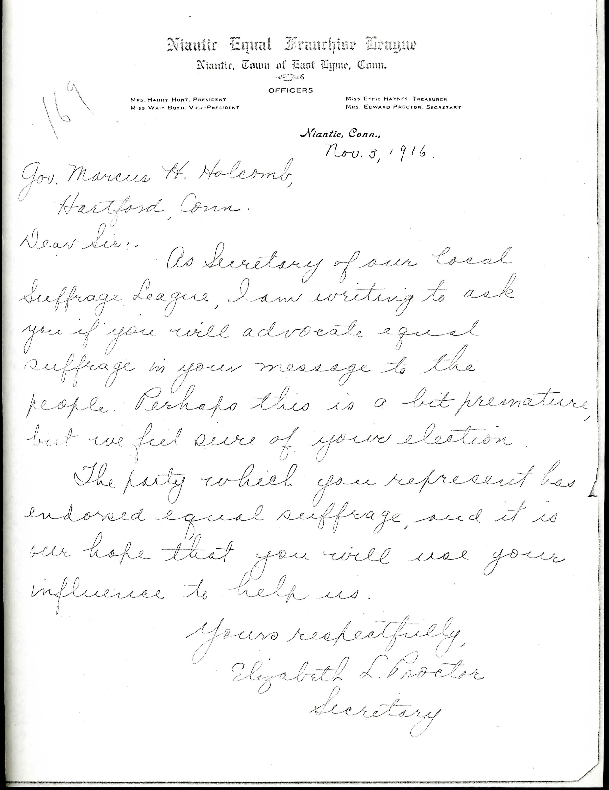 Niantic Equal Franchise League
Niantic, Town of East Lyme, Conn.
OFFICERS
Mrs. Harry Hort, President Miss Effie Haynes, Treasurer
Miss Bush, Vice-President Mrs. Edward Proctor, Secretary
169
Niantic, Conn.,
Nov. 3, 1916.
Gov. Marcus H. Holcomb,
Hartford, Conn.
Dear Sir:-
As Secretary of our local
Suffrage League, I am writing to ask
you if you will advocate equal
suffrage in your message to the
people. Perhaps this is a bit premature,
but we feel sure of your election.
The party which you represent has
endorsed equal suffrage, and it is
our hope that you will use your
influence to help us.
Yours respectfully,
Elizabeth L. Proctor
Secretary